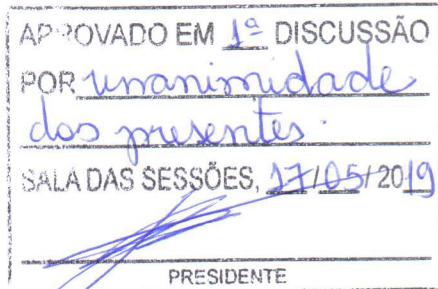 APROVADO EM 1ª DISCUSSÃO
POR unanimidade
dos presentes.
SALA DAS SESSÕES, 17/05/2019
PRESIDENTE